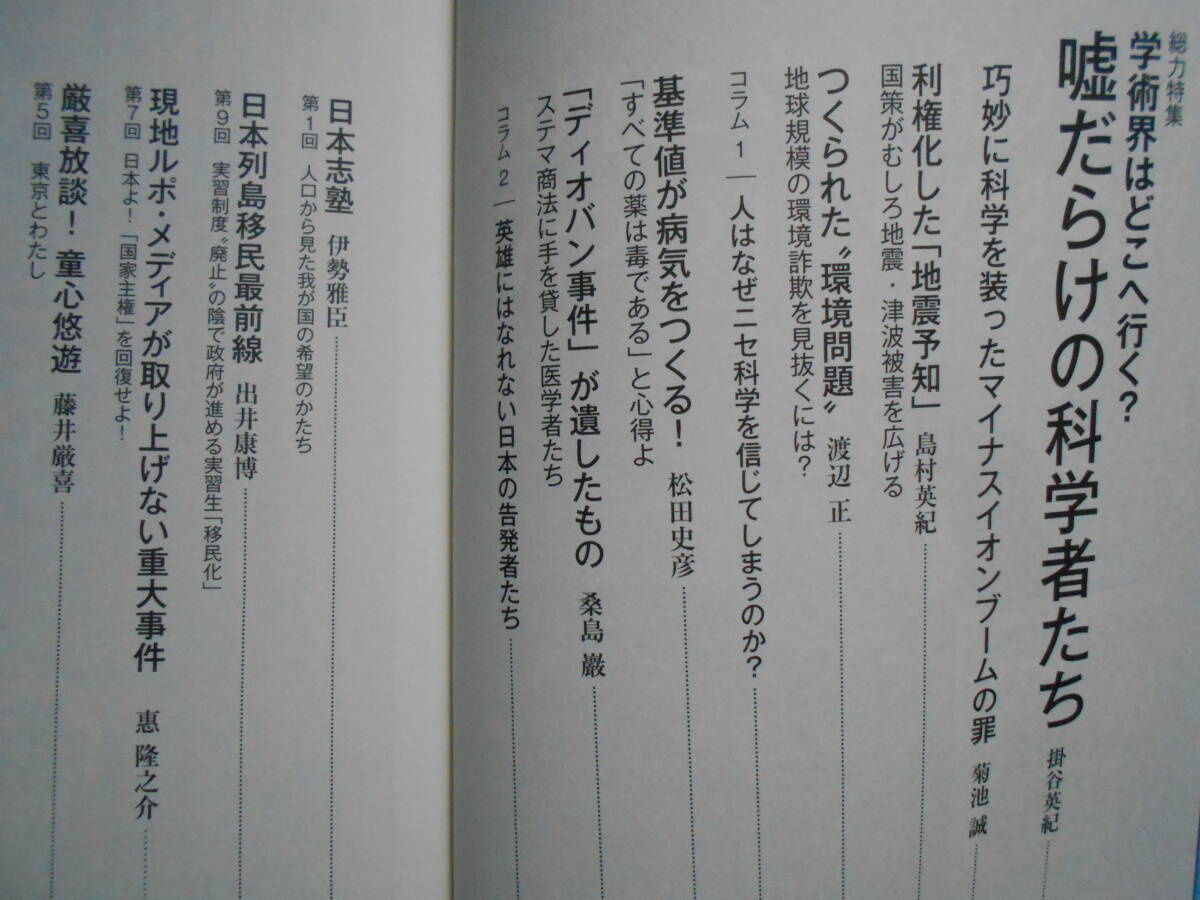 総力特集
学術界はどこへ行く?
嘘だらけの科学者たち 掛谷英紀
巧妙に科学を装ったマイナスイオンブームの罪 菊池 誠
利権化した「地震予知」 島村英紀
国策がむしろ地震・津波被害を広げる
つくられた〝環境問題〟 渡辺 正
地球規模の環境詐欺を見抜くには?
コラム1―人はなぜニセ科学を信じてしまうのか?
基準値が病気をつくる! 松田史彦
「すべての薬は毒である」と心得よ
「ディオバン事件」が遺したもの 桑島 巖
ステマ商法に手を貸した医学者たち
コラム2―英雄にはなれない日本の告発者たち
日本志塾 伊勢雅臣
第1回 人口から見た我が国の希望のかたち
日本列島移民最前線 出井康博
第9回 実習制度〝廃止〟の陰で政府が進める実習生「移民化」
現地ルポ・メディアが取り上げない重大事件 惠 隆之介
第7回 日本よ!「国家主権」を回復せよ!
厳喜放談! 童心悠遊 藤井厳喜
第5回 東京とわたし